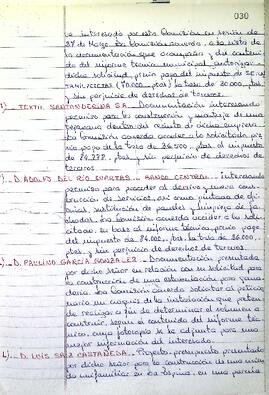 030
lo interesado por esta Comisión en sesión de
27 de Mayo. La Comisión acuerda, a la vista de
la documentación que acompaña y del conteni
do del informe técnico municipal, autorizar
dicha solicitud, previo pago del impuesto de SETEN
TA MIL PESETAS (70.000 ptas)
y sin perjuicio de derechos de terceros.
TEXTIL SANTANDERINA SA. Documentación interesando
permiso para la construcción y montaje de una
dentro del recinto de dicha empresa.
La Comisión acuerda acceder a lo solicitado, pre
vio pago de la tasa de 36.500 ptas, el impuesto
de 84.278 ptas y sin perjuicio de derechos de
terceros.
D. ADOLFO DEL RÍO CUARTAS - BANCO CENTRAL. Interesando
permiso para proceder al derribo y nueva cons
trucción de servicios, así como pintado de ofi
cinas, sustitución de puertas y limpieza de fa
chadas. La Comisión acuerda acceder a lo soli
citado, en base al informe técnico, previo pago
del impuesto de 84.000 ptas, la tasa de 36.000
ptas, y sin perjuicio de derechos de terceros.
D. PAULINO GARCÍA GONZALEZ. Documentación presentada
por dicho señor en relación con su solicitud para
la construcción de una estabulación para gana
dería. La Comisión acuerda solicitar al peticio
nario un croquis de la instalación que preten
de realizar a fin de determinar el volumen a
construir, según el contenido del informe téc
nico, cuya fotocopia se le adjunta para una
mejor información del interesado.
D. LUIS SAIZ CASTAÑEDA. Proyecto-presupuesto presentado
por dicho señor para la construcción de una vivien
da unifamiliar en en una parcela